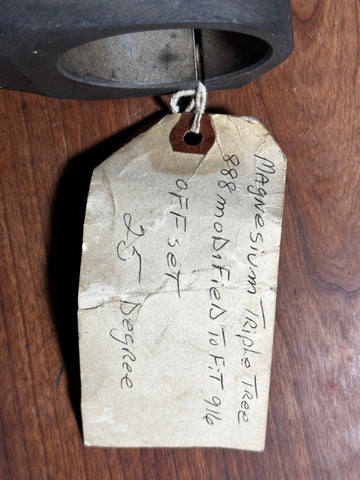 MAGNESIUM TRIPLE TREE
888 MODIFIED TO FIT 916
OFFSET
25 DEGREE